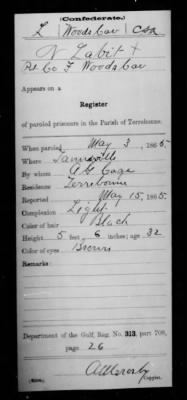 (Confederate.)
L | Woods Cav | CSA
N Labit
Pvt Co F Woods Cav
Appears on a
Register
of paroled prisoners in the Parish of Terrebonne.
When paroled May 3, 1865
Where
By whom A G Cage
Residence Terrebonne
Reported May 15, 1865.
Complexion Light
Color of hair Black
Height 5 feet 6 inches; age 32
Color of eyes Brown
Remarks:
Department of the Gulf, Reg. No. 313, part 709,
page 26
Copyist.